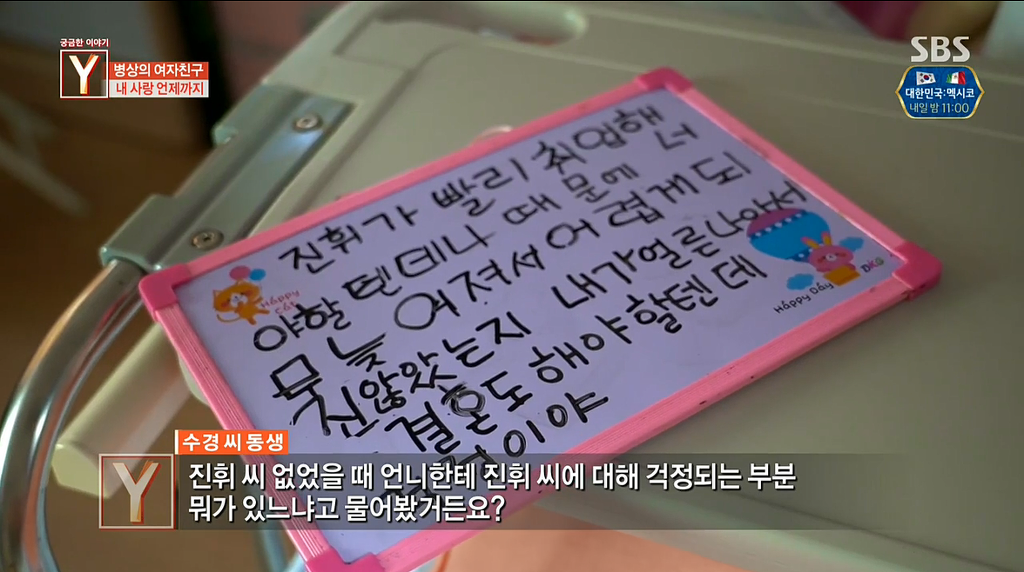 궁금한 이야기
Y
병상의 여자친구
내 사랑 언제까지
SBS
대한민국:멕시코
내일 밤 11:00
진휘가 빨리 취업해
야할 텐데나 때문에 너
무 늦 여져서 어렵게 되
진않았는지 내가얼른나아서
결혼도 해야할텐데
걱정이야
Happy Day
Happy Day
DKG
수경 씨 동생
Y
진휘 씨 없었을 때 언니한테 진휘 씨에 대해 걱정되는 부분
뭐가 있느냐고 물어봤거든요?